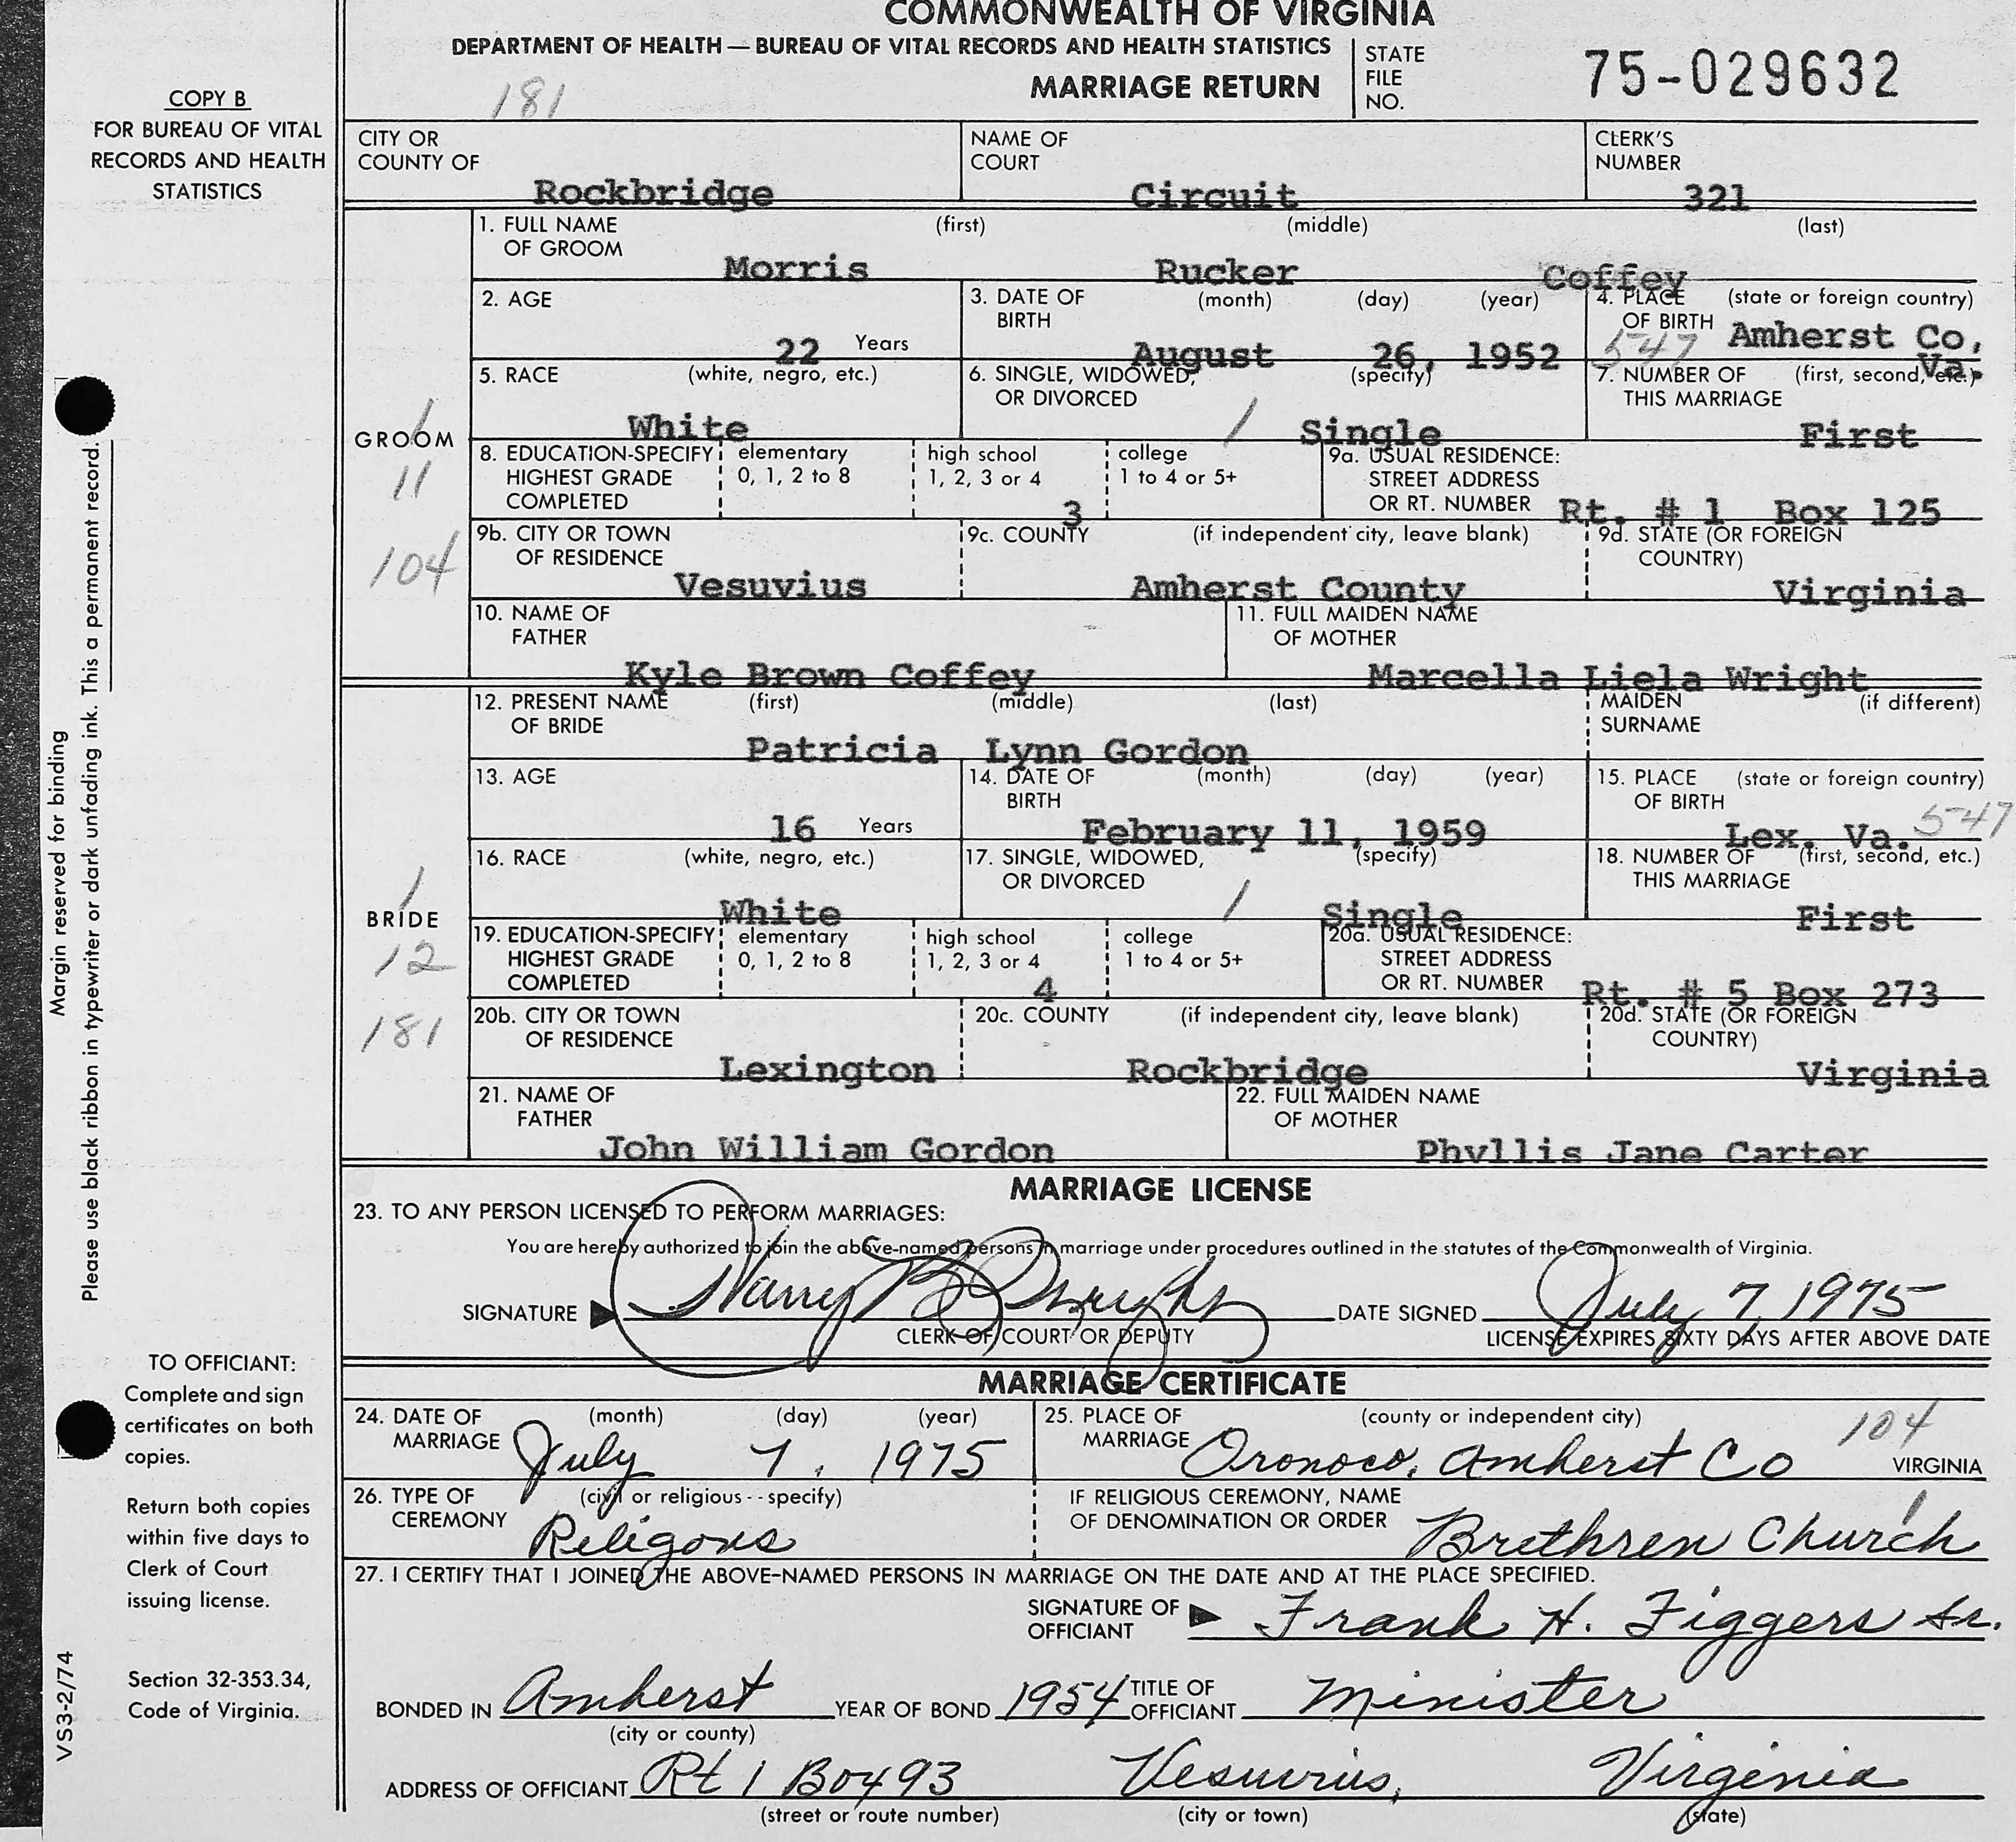 COMMONWEALTH OF VIRGINIA
DEPARTMENT OF HEALTH — BUREAU OF VITAL RECORDS AND HEALTH STATISTICS
MARRIAGE RETURN
STATE FILE NO. 75-029632
181
COPY B
FOR BUREAU OF VITAL
RECORDS AND HEALTH
STATISTICS
CITY OR COUNTY OF Rockbridge
NAME OF COURT Circuit
CLERK'S NUMBER 321
GROOM
1
11
104
1. FULL NAME OF GROOM (first) (middle) (last)
Morris Rucker Coffey
2. AGE 22 Years
3. DATE OF BIRTH (month) (day) (year) August 26, 1952
4. PLACE OF BIRTH (state or foreign country) 547 Amherst Co, Va.
5. RACE (white, negro, etc.) White
6. SINGLE, WIDOWED, OR DIVORCED (specify) / Single
7. NUMBER OF THIS MARRIAGE (first, second, etc.) First
8. EDUCATION-SPECIFY HIGHEST GRADE COMPLETED
elementary 0, 1, 2 to 8
high school 1, 2, 3 or 4 3
college 1 to 4 or 5+
9a. USUAL RESIDENCE: STREET ADDRESS OR RT. NUMBER Rt. # 1 Box 125
9b. CITY OR TOWN OF RESIDENCE Vesuvius
9c. COUNTY (if independent city, leave blank) Amherst County
9d. STATE (OR FOREIGN COUNTRY) Virginia
10. NAME OF FATHER Kyle Brown Coffey
11. FULL MAIDEN NAME OF MOTHER Marcella Liela Wright
BRIDE
1
12
181
12. PRESENT NAME OF BRIDE (first) (middle) (last) Patricia Lynn Gordon
MAIDEN SURNAME (if different)
13. AGE 16 Years
14. DATE OF BIRTH (month) (day) (year) February 11, 1959
15. PLACE OF BIRTH (state or foreign country) Lex. Va. 547
16. RACE (white, negro, etc.) White
17. SINGLE, WIDOWED, OR DIVORCED (specify) / Single
18. NUMBER OF THIS MARRIAGE (first, second, etc.) First
19. EDUCATION-SPECIFY HIGHEST GRADE COMPLETED
elementary 0, 1, 2 to 8
high school 1, 2, 3 or 4 4
college 1 to 4 or 5+
20a. USUAL RESIDENCE: STREET ADDRESS OR RT. NUMBER Rt. # 5 Box 273
20b. CITY OR TOWN OF RESIDENCE Lexington
20c. COUNTY (if independent city, leave blank) Rockbridge
20d. STATE (OR FOREIGN COUNTRY) Virginia
21. NAME OF FATHER John William Gordon
22. FULL MAIDEN NAME OF MOTHER Phyllis Jane Carter
MARRIAGE LICENSE
23. TO ANY PERSON LICENSED TO PERFORM MARRIAGES:
You are hereby authorized to join the above-named persons in marriage under procedures outlined in the statutes of the Commonwealth of Virginia.
SIGNATURE Harry B
CLERK OF COURT OR DEPUTY
DATE SIGNED July 7, 1975
LICENSE EXPIRES SIXTY DAYS AFTER ABOVE DATE
MARRIAGE CERTIFICATE
24. DATE OF MARRIAGE (month) (day) (year) July 7, 1975
25. PLACE OF MARRIAGE (county or independent city) Oronoco, Amherst Co 104 VIRGINIA
26. TYPE OF CEREMONY (civil or religious -- specify) Religous
IF RELIGIOUS CEREMONY, NAME OF DENOMINATION OR ORDER Brethren Church
27. I CERTIFY THAT I JOINED THE ABOVE-NAMED PERSONS IN MARRIAGE ON THE DATE AND AT THE PLACE SPECIFIED.
SIGNATURE OF OFFICIANT Frank H. Figgers Sr.
BONDED IN Amherst YEAR OF BOND 1954 TITLE OF OFFICIANT Minister
(city or county)
ADDRESS OF OFFICIANT Rt 1 Box 93 Vesuvius, Virginia
(street or route number) (city or town) (state)
Margin reserved for binding
Please use black ribbon in typewriter or dark unfading ink. This a permanent record.
TO OFFICIANT:
Complete and sign
certificates on both
copies.
Return both copies
within five days to
Clerk of Court
issuing license.
Section 32-353.34,
Code of Virginia.
VS3-2/74